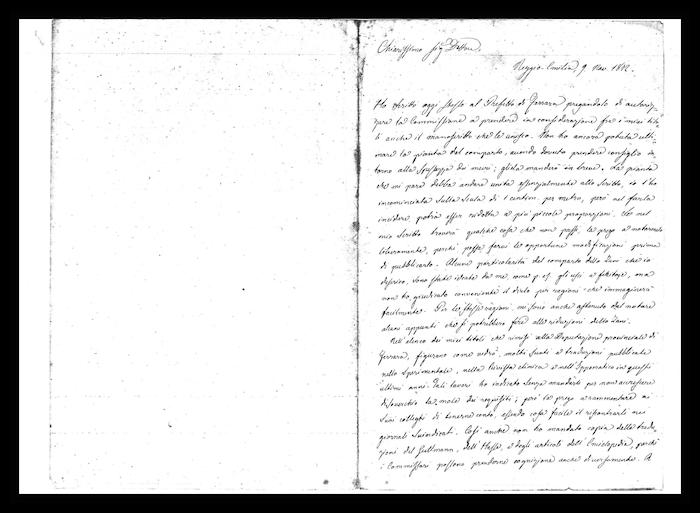 Chiarissimo Sig. Dottore.
Reggio-Emilia, 9 Nov. 1872.
Ho scritto oggi stesso al Prefetto di Ferrara pregandolo di autoriz-
zare la Commissione a prendere in considerazione fra i miei tito-
li anche il manoscritto che le unisco. Non ho ancora potuto ulti-
mare la pianta del comparto, avendo dovuto prendere consiglio in-
torno alla spessezza dei muri; gliela manderò in breve. La pianta
che mi pare debba andare unita essenzialmente allo scritto, io l'ho
incominciata sulla scala di 1 centim. per metro, però nel farla
incidere, potrà esser ridotta a più piccole proporzioni. Se nel
mio scritto troverà qualche cosa che non passi, la prego a notarmelo
liberamente, perchè possa farvi le opportune modificazioni prima
di pubblicarlo. Alcune particolarità del comparto dello Zani che io
descrivo, sono state ideate da me, come p. es. gli usci a
non ho giudicato conveniente il dirlo per ragioni che immaginerà
facilmente. Per le stesse ragioni mi sono anche astenuto dal notare
alcuni appunti che si potrebbero fare alle riduzioni dello Zani.
Nell'elenco dei miei titoli che rimisi alla Deputazione provinciale di
Ferrara, figurano come vedrà, molti sunti e traduzioni pubblicate
nello Sperimentale, nella rivista clinica e nell'Ippocratico in questi
ultimi anni. Tali lavori ho indicato senza mandarli per non accrescere
di soverchio la mole dei requisiti; però la prego a rammentare ai
suoi colleghi di tenerne conto, essendo cosa facile il riscontrarli nei
giornali suindicati. Così anche non ho mandato copia delle tradu-
zioni del Gultmann, dell'Hesse, e degli articoli dell'Enciclopedia, perchè
i Commissari possono prenderne cognizione anche diversamente. A